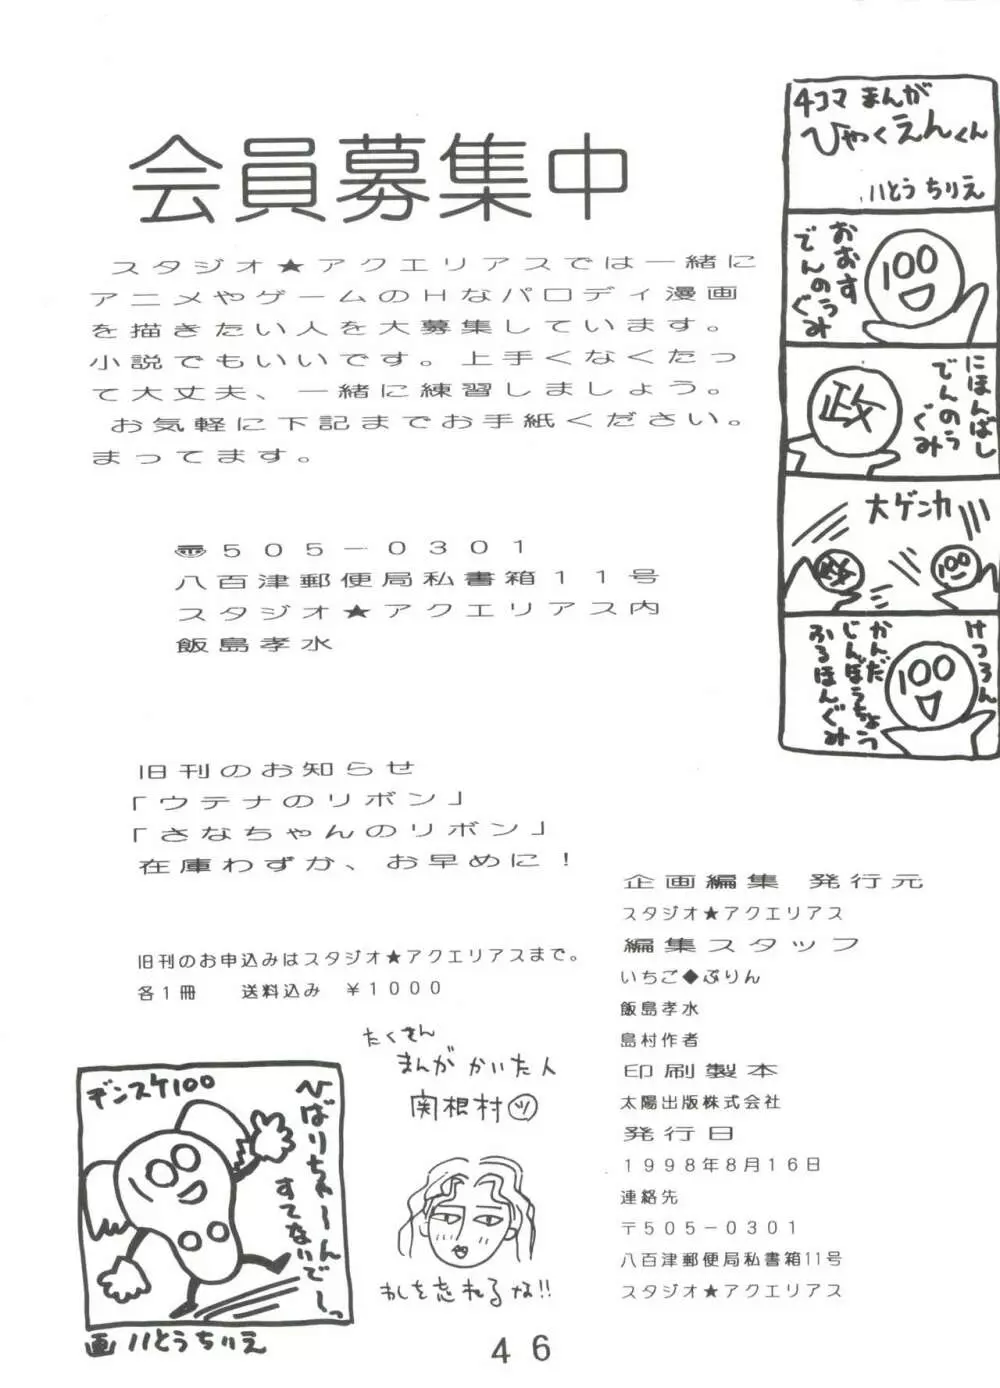 会員募集中
スタジオ★アクエリアスでは一緒に
アニメやゲームのHなパロディ漫画
を描きたい人を大募集しています。
小説でもいいです。上手くなくたっ
て大丈夫、一緒に練習しましょう。
お気軽に下記までお手紙ください。
まってます。
〠505－0301
八百津郵便局私書箱11号
スタジオ★アクエリアス内
飯島孝水
旧刊のお知らせ
「ウテナのリボン」
「さなちゃんのリボン」
在庫わずか、お早めに！
旧刊のお申込みはスタジオ★アクエリアスまで。
各1冊　送料込み　￥1000
4コマ まんが
ひゃくえんくん
いとうちりえ
おおす
でんのうぐみ
100
にほんばし
でんのうぐみ
政
大ゲンカ
政
100
けつろん
かんだ
じんぼうちょう
ふるほんぐみ
100
企画編集　発行元
スタジオ★アクエリアス
編集スタッフ
いちご◆ぷりん
飯島孝水
島村作者
印刷製本
太陽出版株式会社
発行日
1998年8月16日
連絡先
〒505－0301
八百津郵便局私書箱11号
スタジオ★アクエリアス
たくさん
まんがかいた人
関根村ツ
わしを忘れるな!!
デンスケ100
ひばりちゃーんすてないでーっ
画 いとうちりえ
46